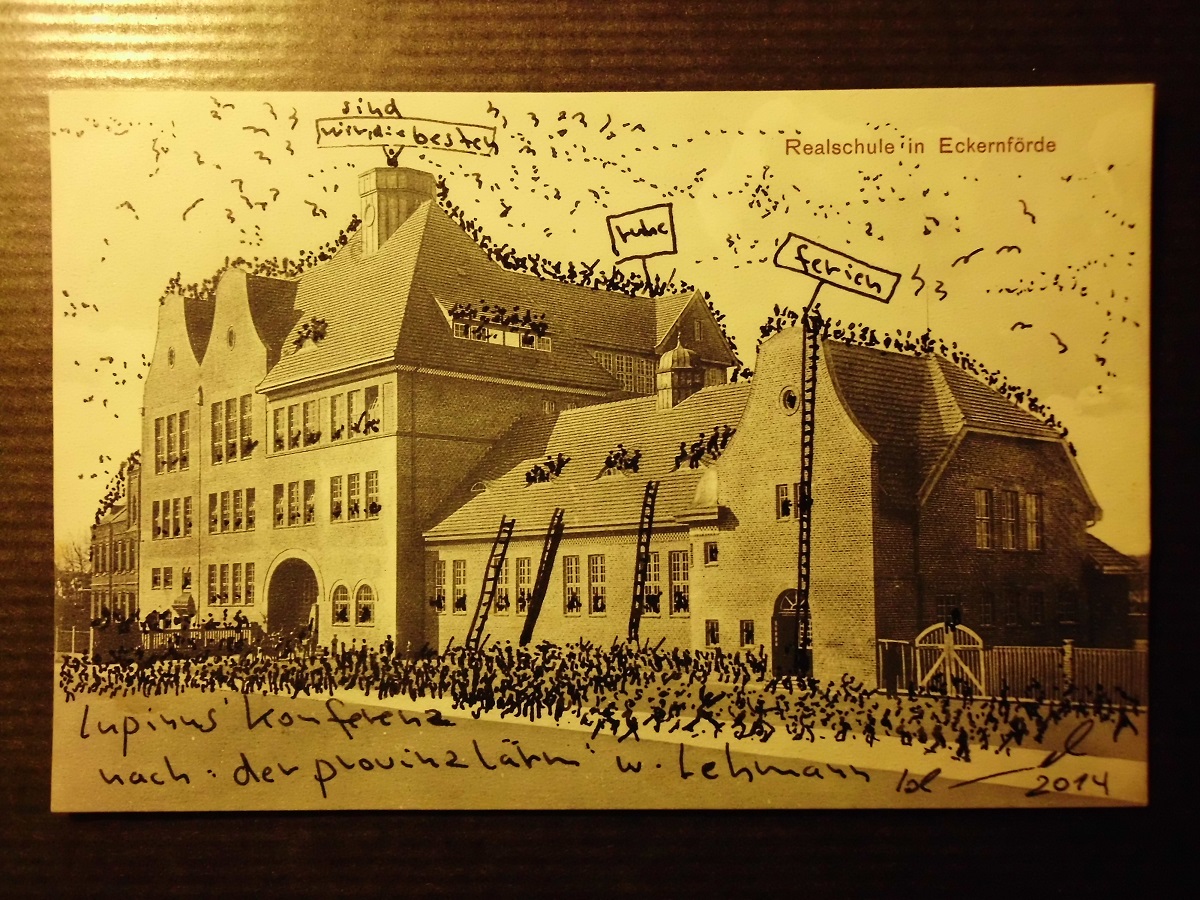 sind
wir, die besten
Realschule in Eckernförde
ruhe
ferien
lupinus' konferenz
nach: "der provinzlärm" w. Lehmann
2014